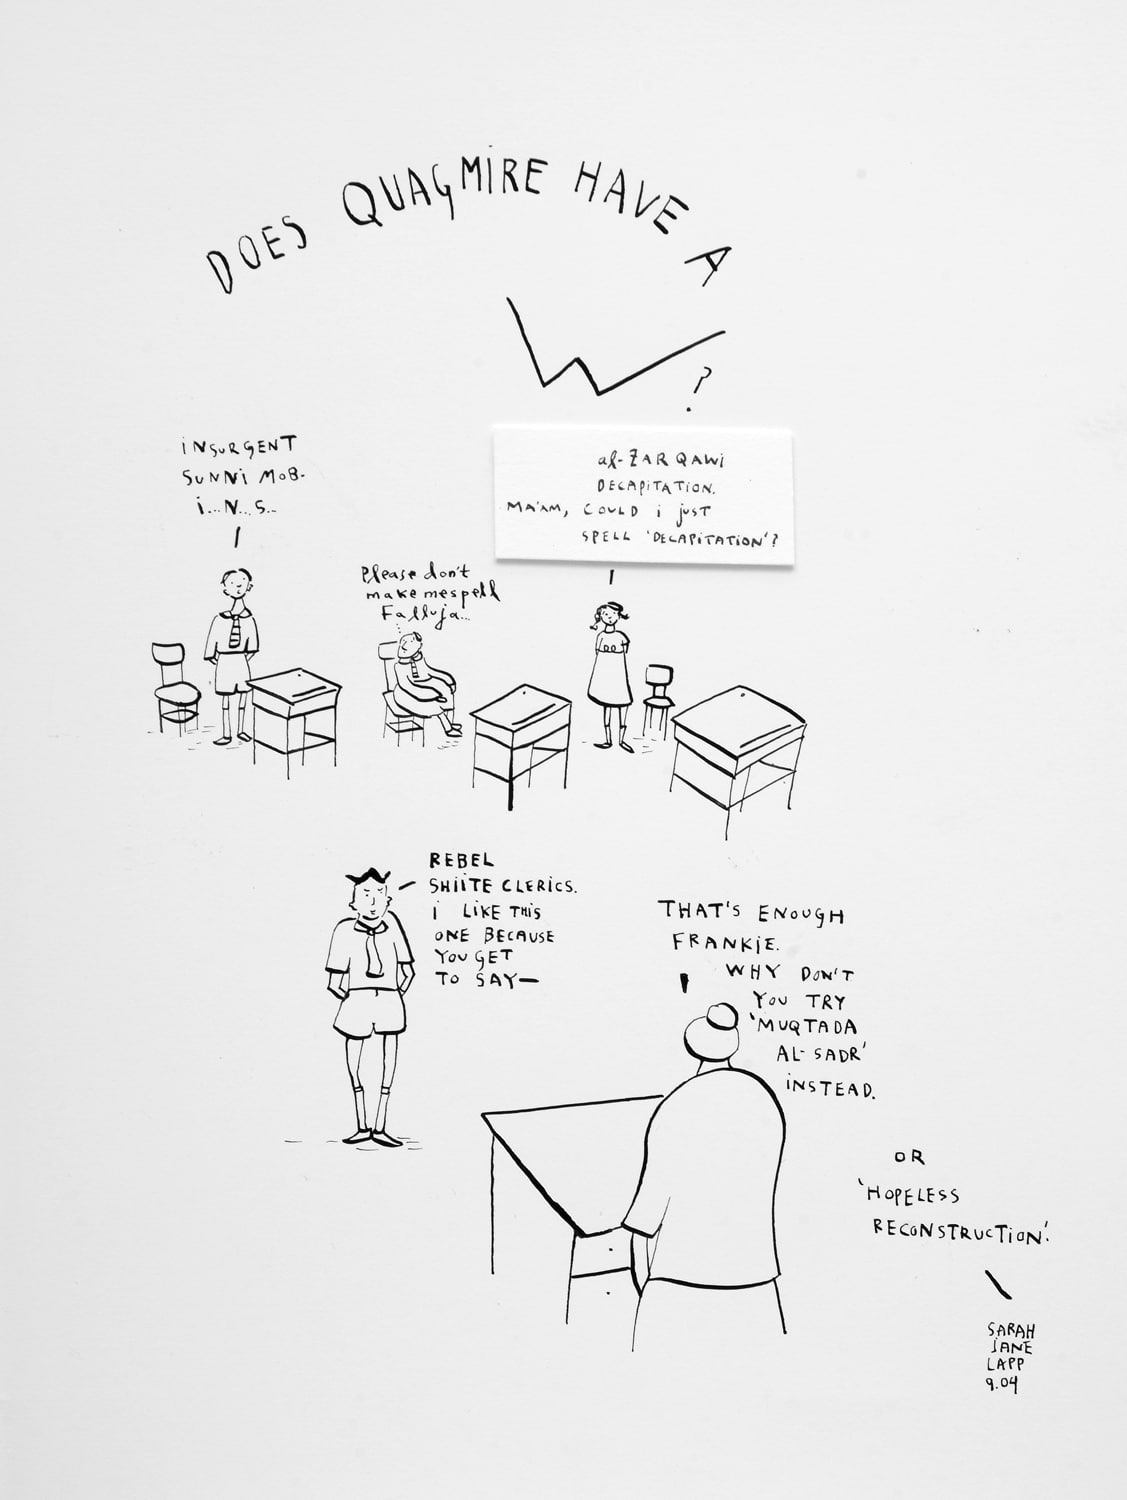 DOES QUAGMIRE HAVE A
W
?
INSURGENT
SUNNI MOB-
i...N...S..
Please don't
make me spell
Falluja...
al-ZARQAWI
DECAPITATION.
MA'AM, COULD i just
SPELL 'DECAPITATION'?
REBEL
SHIITE CLERICS.
I LIKE THIS
ONE BECAUSE
YOU GET
TO SAY—
THAT'S ENOUGH
FRANKIE.
WHY DON'T
YOU TRY
'MUQTADA
AL-SADR'
INSTEAD.
OR
'HOPELESS
RECONSTRUCTION'.
SARAH
JANE
LAPP
9.04